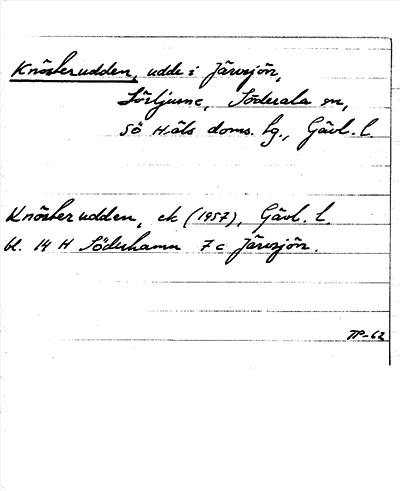 Knösterudden, udde i Järvsjön,
Sörljusne, Söderala sn,
Sö Häls doms. hg., Gävl. l.
Knösterudden, ek (1957), Gävl. l.
bl. 14 H Söderhamn 7 c Järvsjön.
TP-62